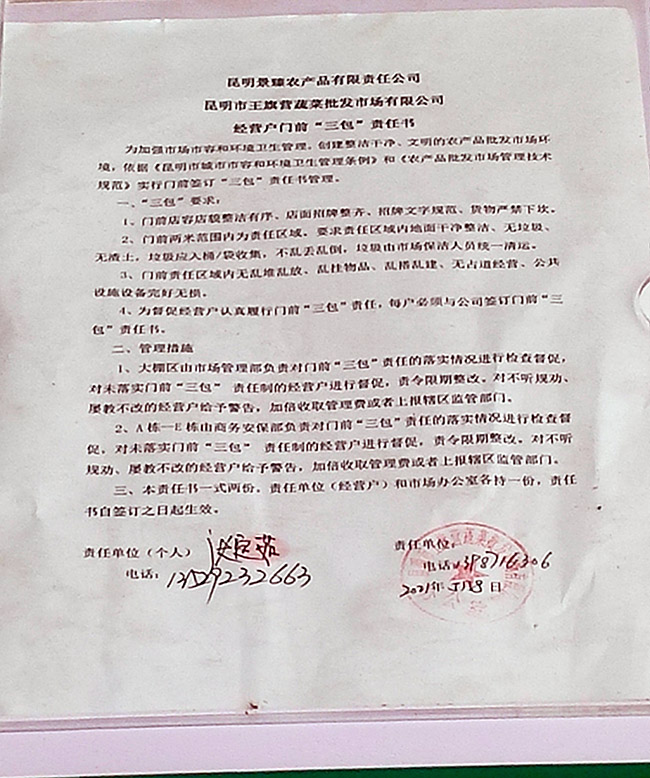 昆明景臻农产品有限责任公司
昆明市王旗营蔬菜批发市场有限公司
经营户门前“三包”责任书
为加强市场市容和环境卫生管理，创建整洁干净、文明的农产品批发市场环
境，依据《昆明市城市市容和环境卫生管理条例》和《农产品批发市场管理技术
规范》实行门前签订“三包”责任书管理。
一、“三包”要求：
1、门前店容店貌整洁有序、店面招牌整齐、招牌文字规范、货物严禁下坎。
2、门前两米范围内为责任区域。要求责任区域内地面干净整洁、无垃圾、
无渣土，垃圾应入桶/袋收集，不乱丢乱倒，垃圾由市场保洁人员统一清运。
3、门前责任区域内无乱堆乱放、乱挂物品、乱搭乱建、无占道经营、公共
设施设备完好无损。
4、为督促经营户认真履行门前“三包”责任，每户必须与公司签订门前“三
包”责任书。
二、管理措施
1、大棚区由市场管理部负责对门前“三包”责任的落实情况进行检查督促，
对未落实门前“三包” 责任制的经营户进行督促，责令限期整改。对不听规劝、
屡教不改的经营户给予警告，加倍收取管理费或者上报辖区监管部门。
2、A栋—E栋由商务安保部负责对门前“三包”责任的落实情况进行检查督
促，对未落实门前“三包” 责任制的经营户进行督促，责令限期整改。对不听
规劝、屡教不改的经营户给予警告，加倍收取管理费或者上报辖区监管部门。
三、本责任书一式两份，责任单位（经营户）和市场办公室各持一份，责任
书自签订之日起生效。
责任单位（个人）
责任单位：
电话：13529232663
电话：
2021年 月 日